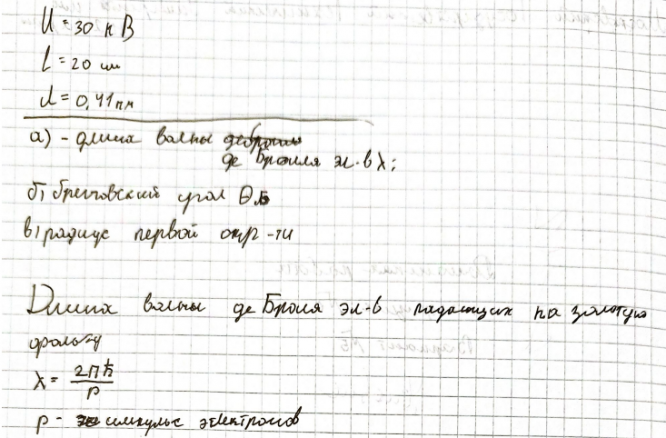 U = 30 кВ
l = 20 см
d = 0,41 нм
а) - длина волны
де Бройля эл-в λ;
б) брегговский угол Θ_Б
в) радиус первой окр-ти
Длина волны де Бройля эл-в падающих на золотую
фольгу
λ = 2πħ/p
p - импульс электронов